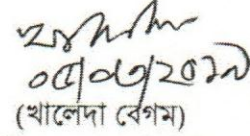 ০৫/০৩/২০১৯
(খালেদা বেগম)